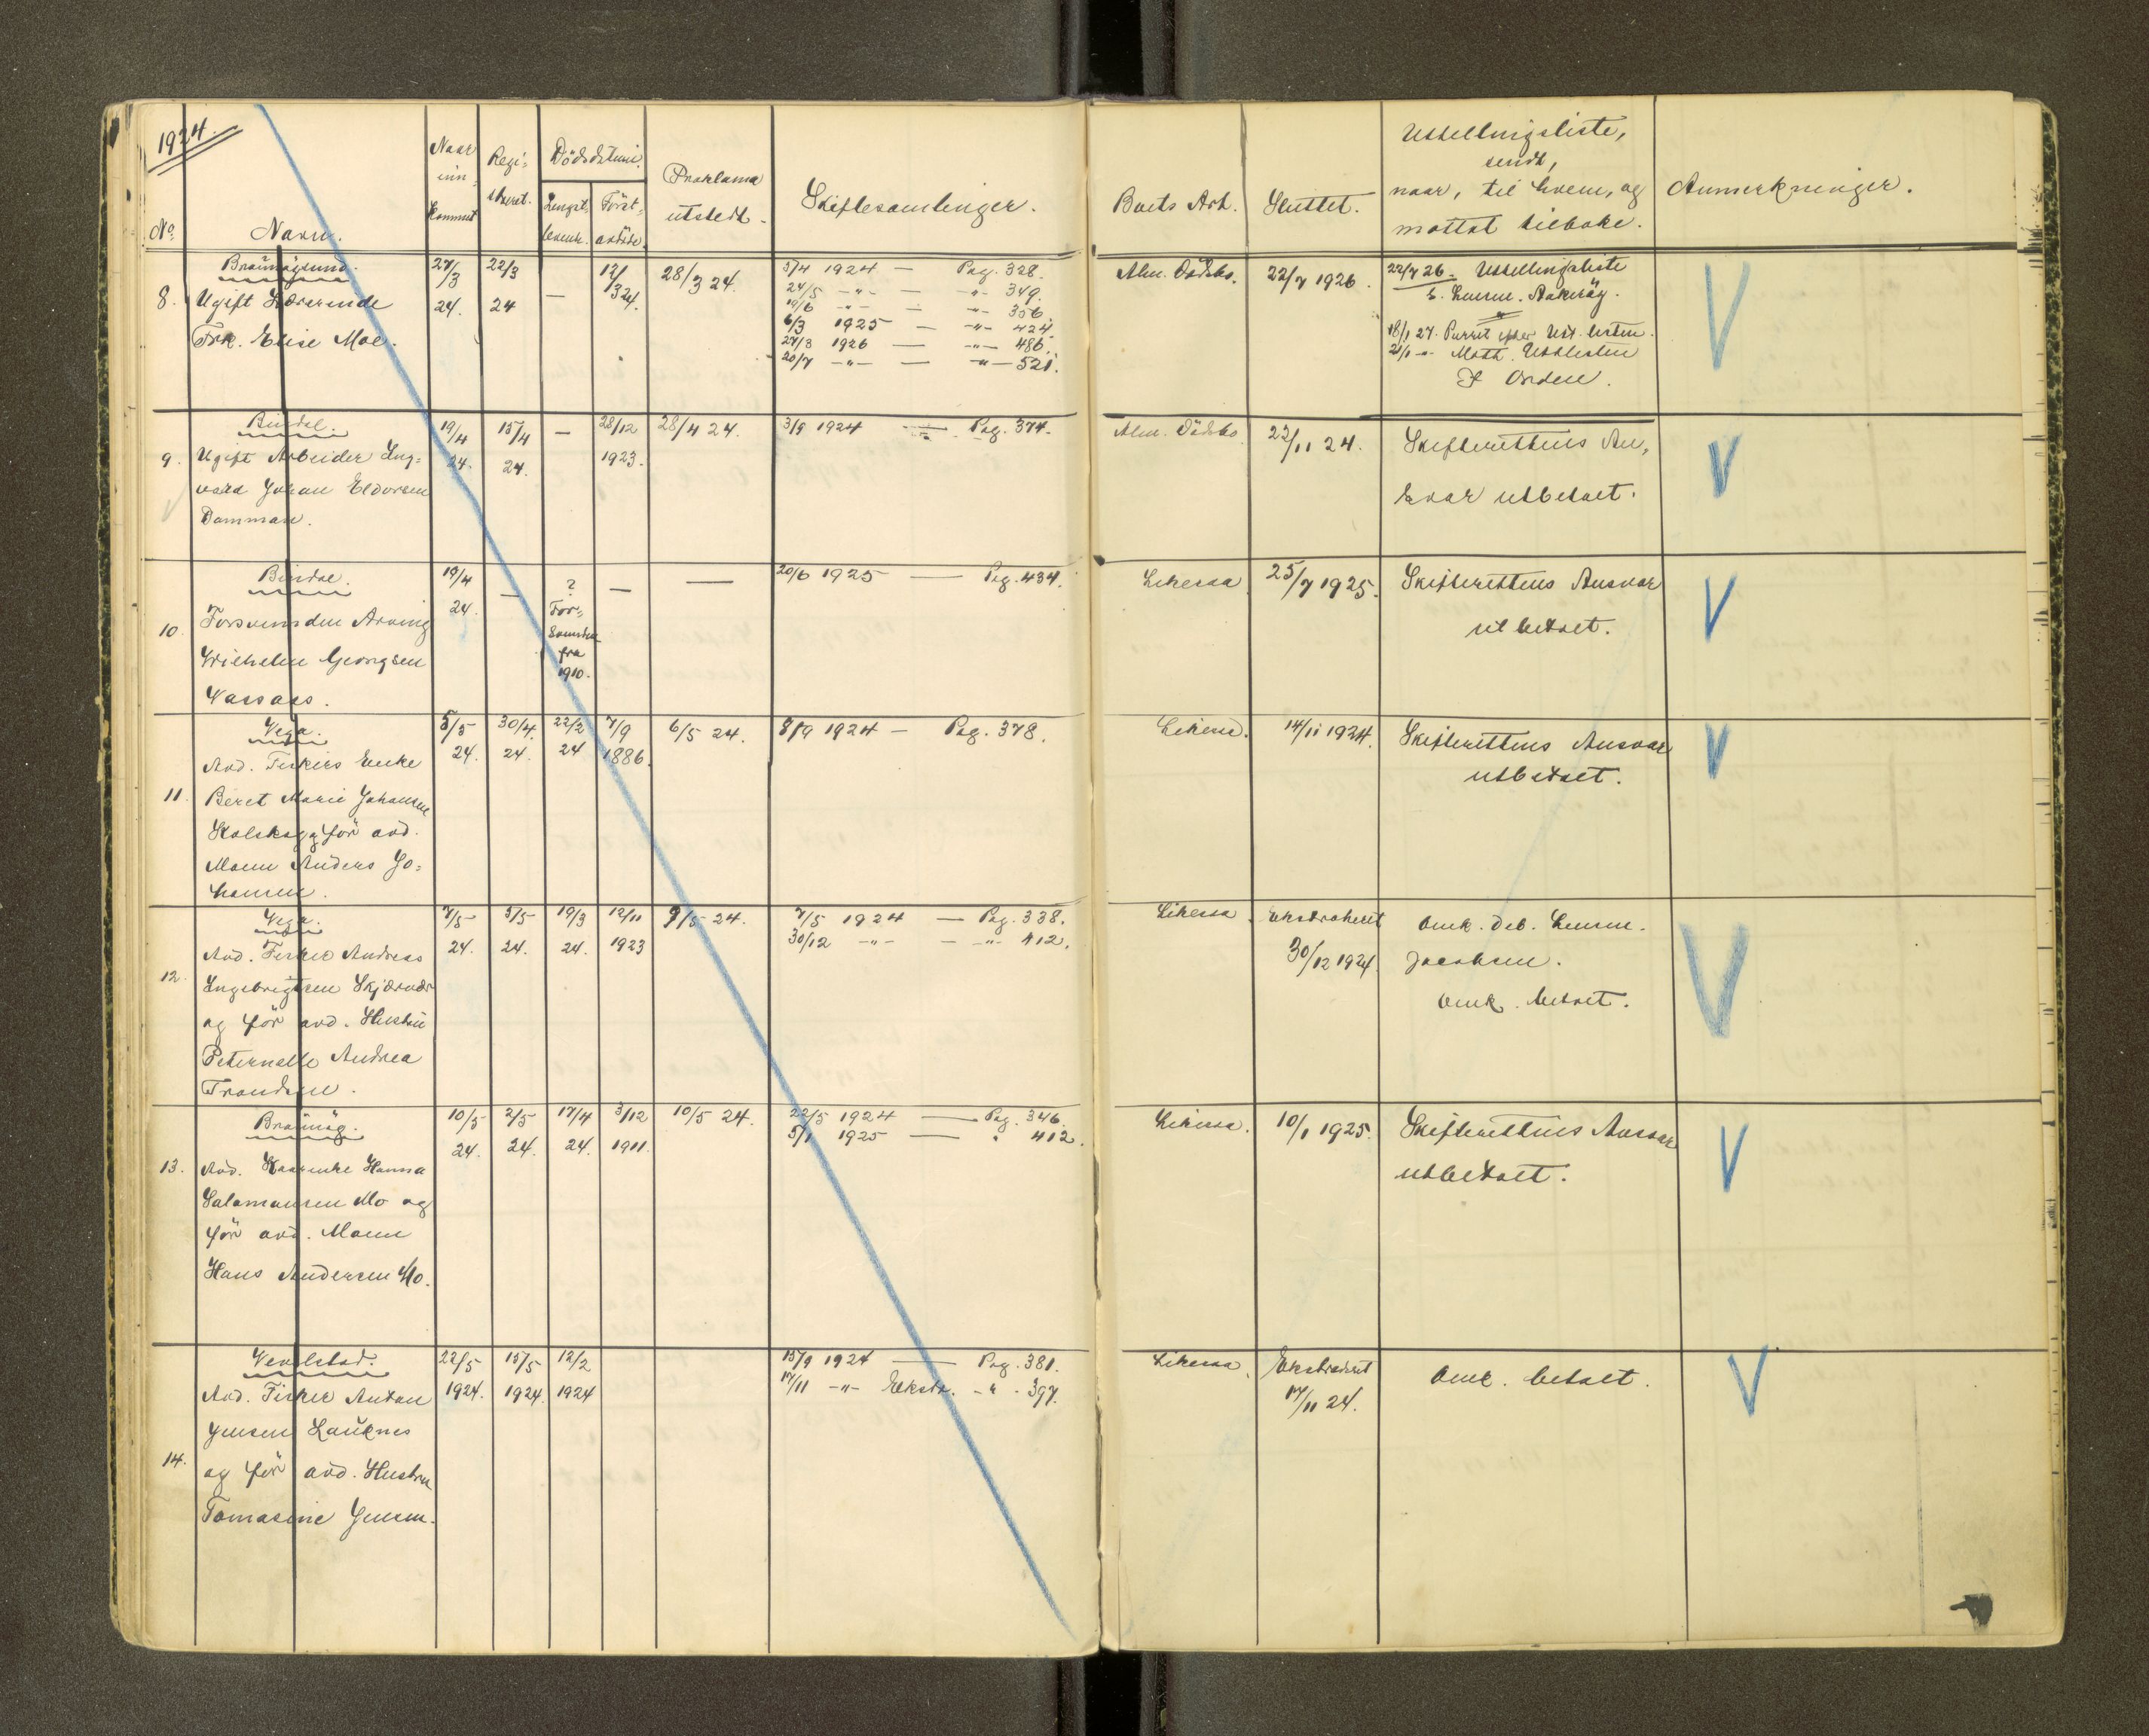 1924.
No.
Navn.
Naar
inn-
kommet
Regi-
streret.
Dödsdatum.
Lengst-
levende.
Först-
avdöde.
Proklama
utstedt.
Skiftesamlinger.
Boets Art.
Sluttet.
Utstellingsliste,
sendt,
naar, til hvem, og
mottat tilbake.
Anmerkninger.
8.
Brönnöysund.
Ugift Lærerinde
Frk. Elise Moe.
27/3
24.
22/3
24
—
12/3 24.
28/3 24.
5/4 1924 — Pag. 328.
24/5 -"- — -"- 349.
19/6 -"- — -"- 356.
6/3 1925 — -"- 424.
27/3 1926 — -"- 486.
20/7 -"- — -"- 521.
Alm. Dödsbo.
22/7 1926.
22/7 26. Utstellingsliste
18/1 27. Purret efter Utst. listen.
21/1 -"- Mott. Utstlisten
I Orden.
9.
Bindal.
Ugift Arbeider Ing-
vald Johan Eldorsen
Damman.
19/4
24.
15/4
24.
—
28/12
1923.
28/4 24.
3/9 1924 — Pag. 374.
Alm. Dödsbo.
22/11 24.
Skifterettens An-
svar utbetalt.
10.
Bindal.
Forsvunden Arving
Wilhelm Georgsen
Vassaas.
19/4
24.
—
?
For-
svunden
fra
1910.
—
—
20/6 1925 — Pag. 434.
Likesaa.
25/7 1925.
Skifterettens Ansvar
utbetalt.
11.
Vega.
Avd. Fiskers Enke
Beret Marie Johansen
Kolskogg för avd.
Mann Anders Jo-
hansen.
5/5
24.
30/4
24.
22/2
24
7/9
1886.
6/5 24.
8/9 1924 — Pag. 378.
Likesaa.
14/11 1924.
Skifterettens Ansvar
utbetalt.
12.
Vega.
Avd. Fisker Andreas
Ingebrigtsen Skjærvær
og för avd. Hustru
Peternelle Andrea
Trondsen.
7/5
24.
5/5
24.
19/3
24.
12/11
1923
9/5 24.
7/5 1924 — Pag. 338.
30/12 -"- — -"- 412.
Likesaa.
Ekstraheret
30/12 1924.
Omk. deb. Lensm.
Jacobsen.
Omk. betalt.
13.
Brönnöy.
Avd. Kaarenke Hanna
Salamonsen Mo og
för avd. Mann
Hans Andersen Mo.
10/5
24.
2/5
24.
17/4
24.
3/12
1911.
10/5 24.
22/5 1924 — Pag. 346.
5/1 1925 — " 412.
Likesaa.
10/1 1925.
Skifterettens Ansvar
utbetalt.
14.
Vevelstad.
Avd. Fisker Anton
Jensen Lauknes
og för avd. Hustru
Tomasine Jensen.
22/5
1924.
15/5
1924.
12/2
1924
15/9 1924 — Pag. 381.
17/11 -"- Ekstr. -"- 397.
Likesaa.
Ekstraheret
17/11 24.
Omk. betalt.